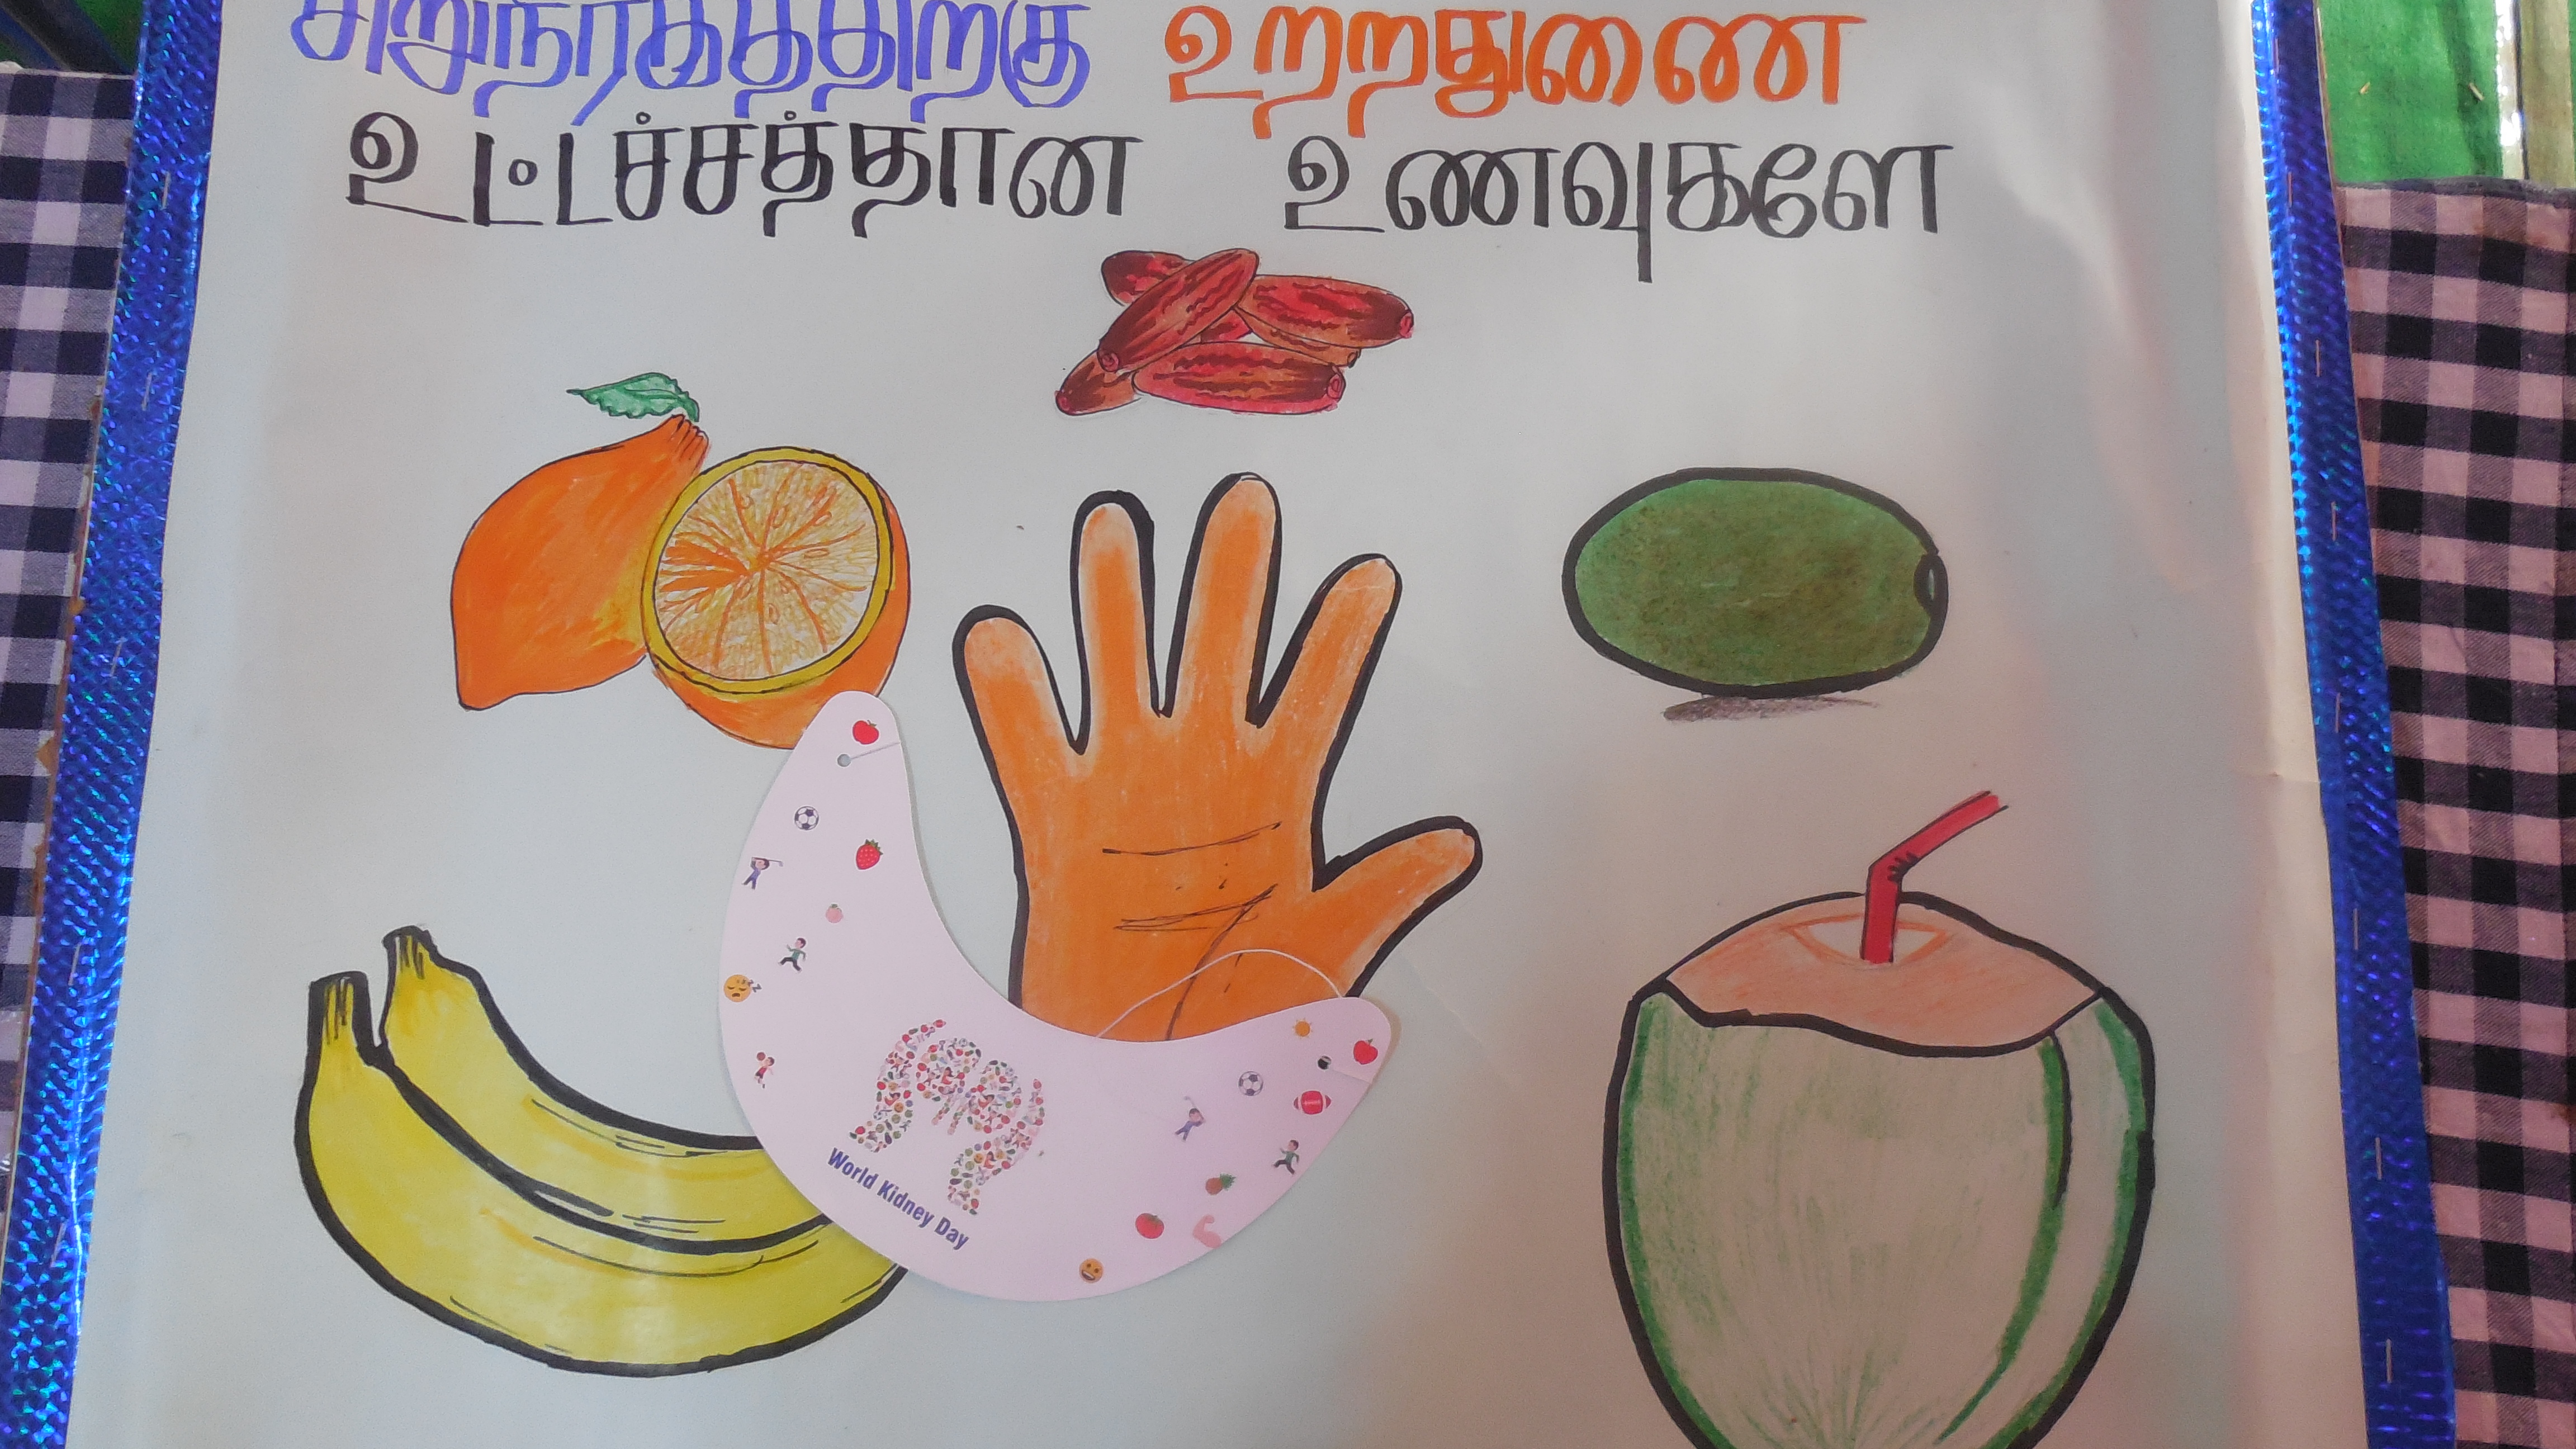 சிறுநீரகத்திற்கு உற்றதுணை
உட்டச்சத்தான உணவுகளே
World Kidney Day